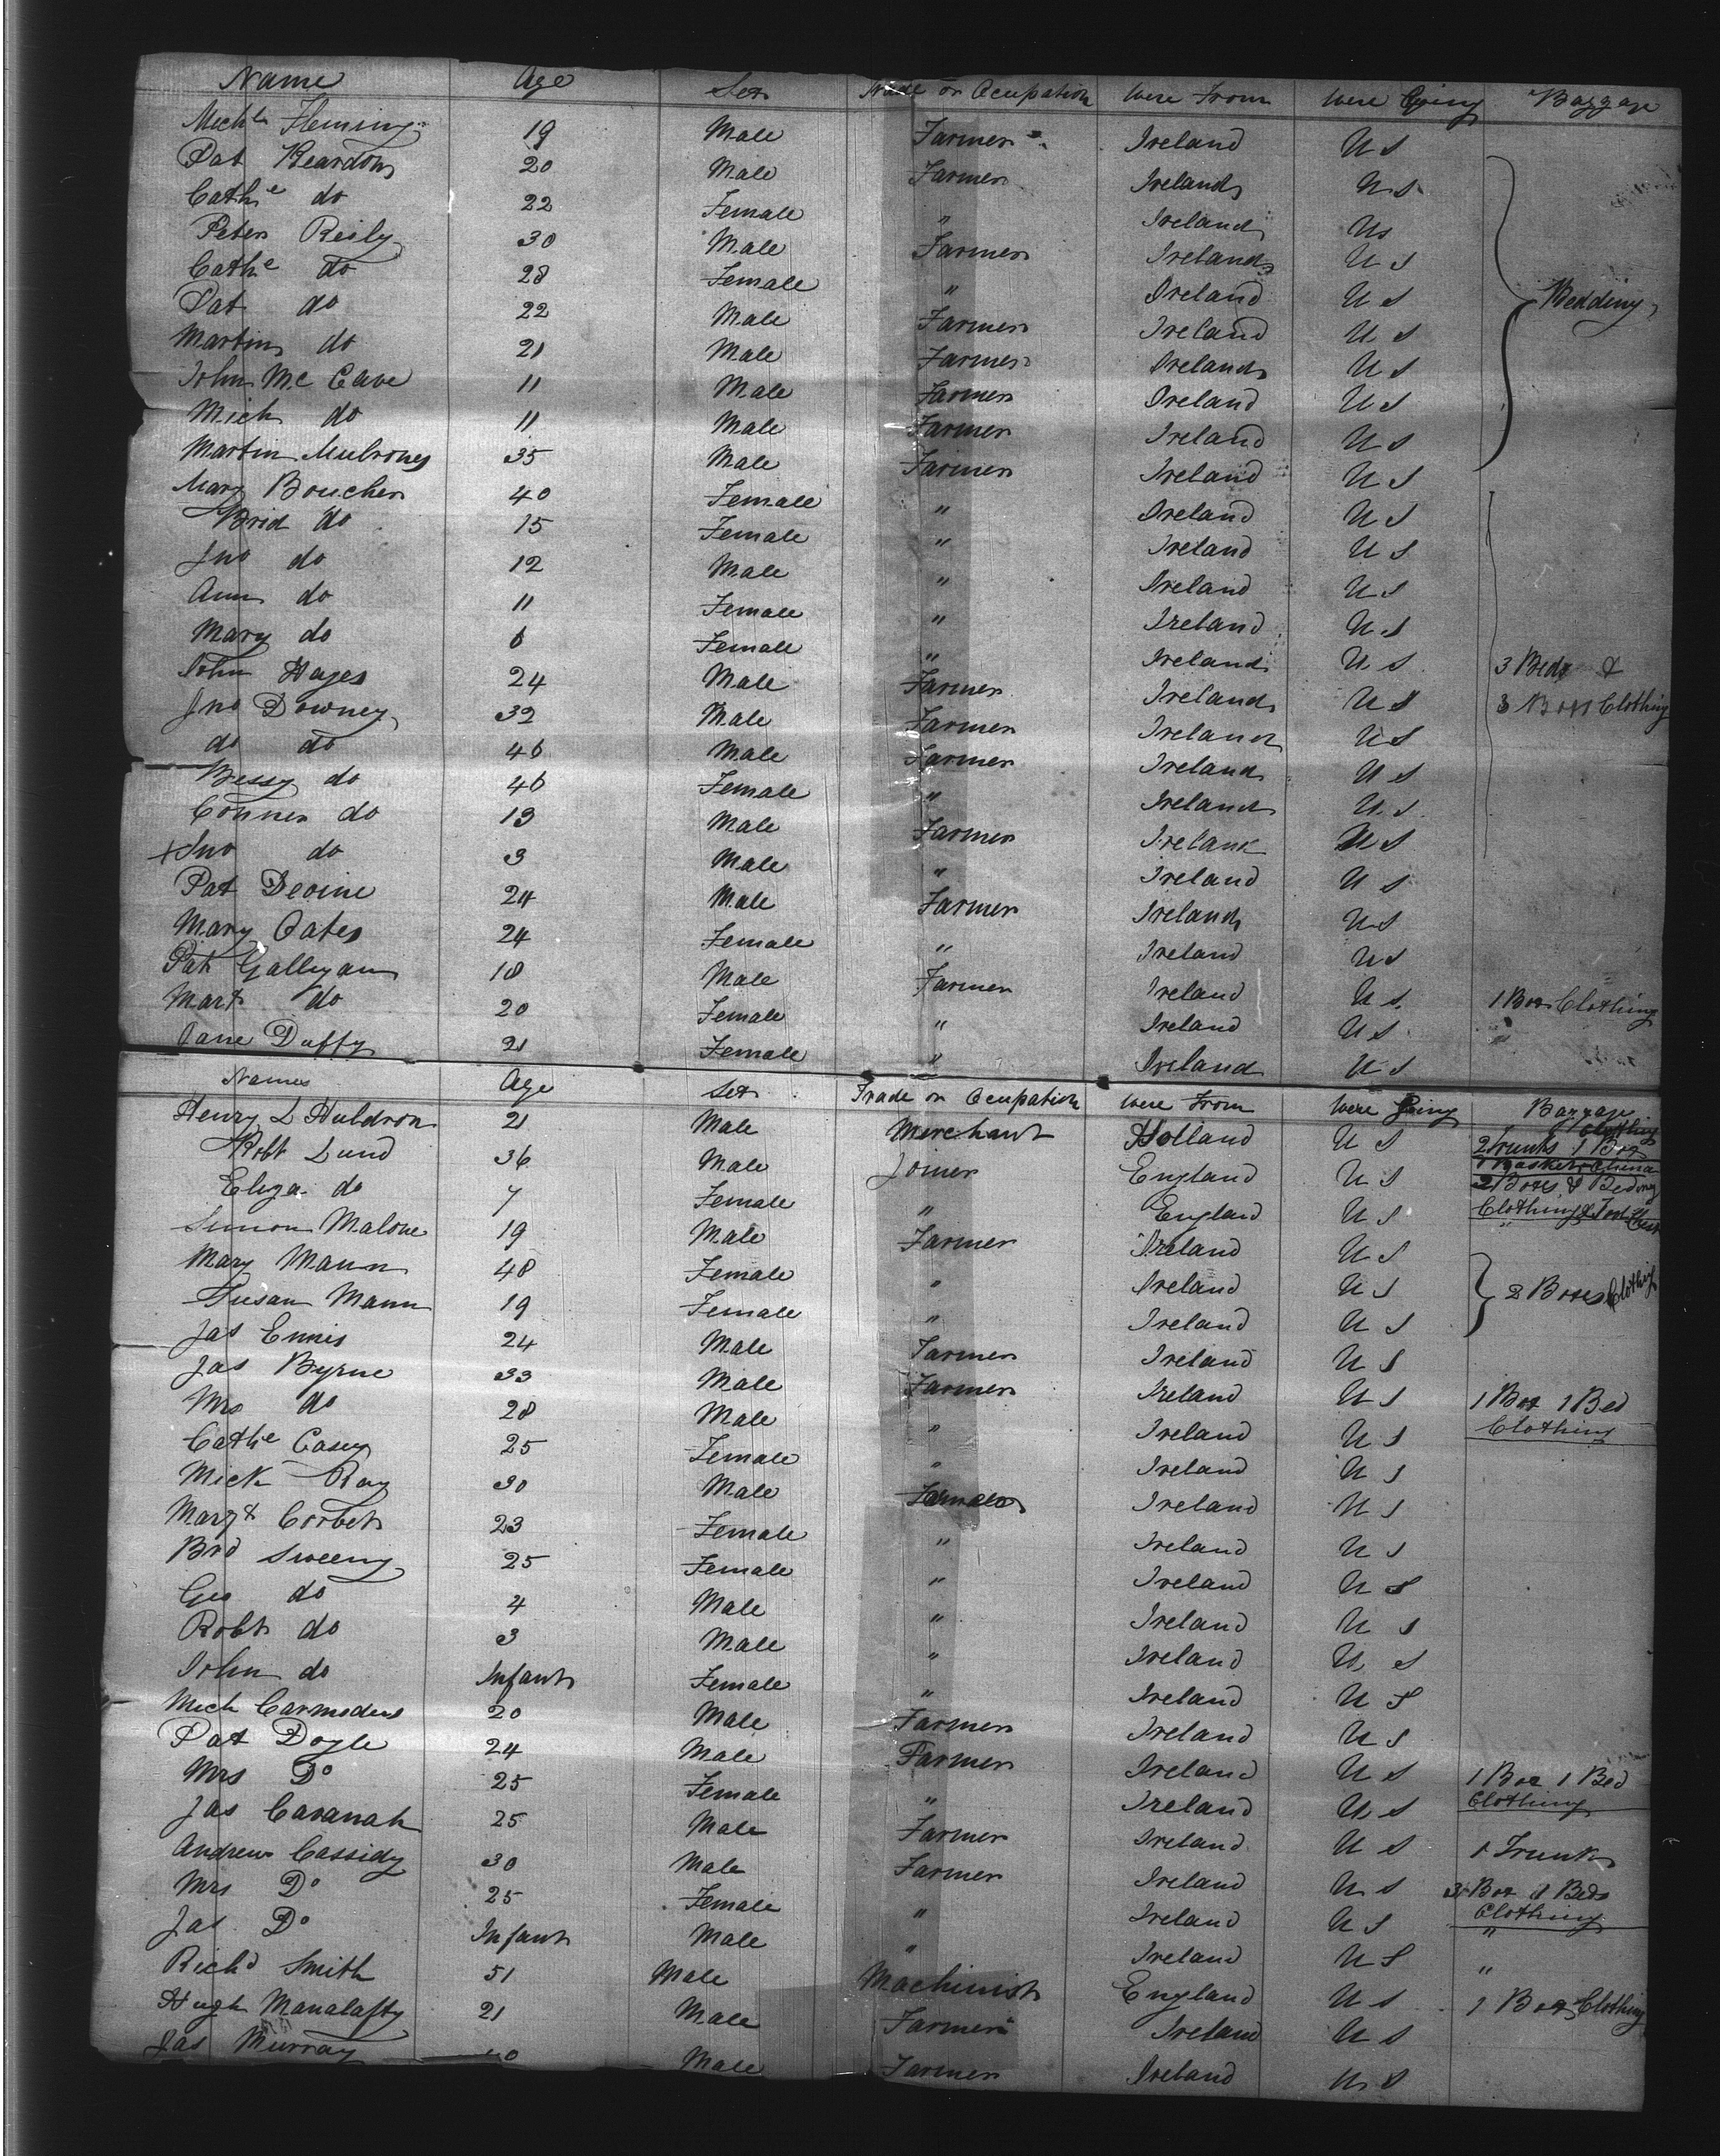 Name Age Sex Trade or Ocupation Were From Were Going Baggage
Michl Fleming 19 Male Farmer Ireland U S
Pat Reardon 20 Male Farmer Ireland U S
Cathe do 22 Female " Ireland US
Peter Reily 30 Male Farmer Ireland U S
Cathe do 28 Female " Ireland U S Bedding
Pat do 22 Male Farmer Ireland U S
Martin do 21 Male Farmer Ireland U S
John Mc Cave 11 Male Farmer Ireland U S
Mich do 11 Male Farmer Ireland U S
Martin Mulroney 35 Male Farmer Ireland U S
Mary Boucher 40 Female " Ireland U S
Brid do 15 Female " Ireland U S
Jno do 12 Male " Ireland U S
Ann do 11 Female " Ireland U S
Mary do 6 Female " Ireland U S 3 Beds &
John Hayes 24 Male Farmer Ireland U S 3 Boxs Clothing
Jno Downey 32 Male Farmer Ireland U S
do do 46 Male Farmer Ireland U S
Bessy do 46 Female " Ireland U S
Conner do 13 Male Farmer Ireland U S
+Jno do 3 Male " Ireland U S
Pat Devine 24 Male Farmer Ireland U S
Mary Oates 24 Female " Ireland U S
Pat Galligan 18 Male Farmer Ireland U S 1 Box Clothing
Mart do 20 Female " Ireland U S "
Jane Duffy 21 Female " Ireland U S
Names Age Sex Trade or Ocupation Were From Were Going Baggage
Henry L Huldron 21 Male Merchant Holland U S Clothing 2 Trunks 1 Box
Robt Lund 36 Male Joiner England U S 1 Basket China 2 Boxes & Beding
Eliza do 7 Female " England U S Clothing & Tool Chest
Simon Malone 19 Male Farmer Ireland U S "
Mary Mann 48 Female " Ireland U S 2 Boxes Clothing
Susan Mann 19 Female " Ireland U S
Jas Ennis 24 Male Farmer Ireland U S
Jas Byrne 33 Male Farmer Ireland U S 1 Box 1 Bed
Mrs do 28 Male " Ireland U S Clothing
Cathe Casey 25 Female " Ireland U S
Mick Ray 30 Male Ireland U S
Margt Corbet 23 Female " Ireland U S
Brd Sweeny 25 Female " Ireland U S
Geo do 4 Male " Ireland U S
Robt do 3 Male " Ireland U S
John do Infant Female " Ireland U S
Mich 20 Male Farmer Ireland U S
Pat Doyle 24 Male Farmer Ireland U S 1 Box 1 Bed
Mrs Do 25 Female " Ireland U S Clothing
Jas Cavanah 25 Male Farmer Ireland U S 1 Trunk
Andrew Cassidy 30 Male Farmer Ireland U S 3 Box 1 Beds
Mrs Do 25 Female " Ireland U S Clothing "
Jas Do Infant Male " Ireland U S "
Richd Smith 51 Male Machinist England U S 1 Box Clothing
Hugh Manalafty 21 Male Farmer Ireland U S
Jas Murray Male Farmer Ireland U S